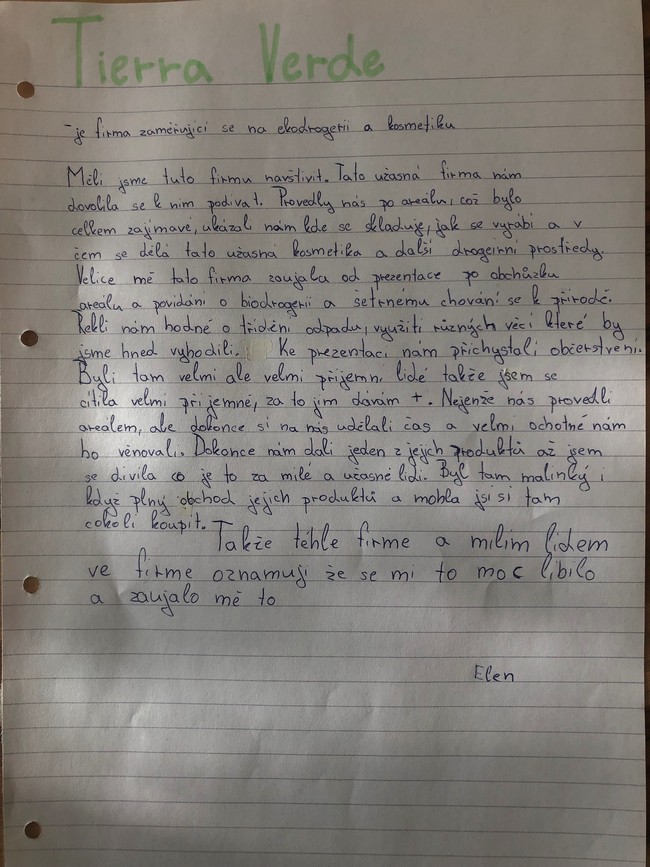 Tierra Verde
- je firma zaměřující se na ekodrogerii a kosmetiku
Měli jsme tuto firmu navštívit. Tato užasná firma nám
dovolila se k nim podívat. Provedly nás po areálu, což bylo
celkem zajímavé, ukázali nám kde se skladuje, jak se vyrábí a v
čem se dělá tato užasná kosmetika a další drogeirní prostředy.
Velice mě tato firma zaujala od prezentace po obchůzku
areálu a povídání o biodrogerii a šetrnému chování se k přírodě.
Řekli nám hodně o třídění odpadu, využití různých věcí které by
jsme hned vyhodili. Ke prezentaci nám přichystali občerstvení.
Byli tam velmi ale velmi příjemní lidé takže jsem se
cítila velmi příjemně, za to jim dávám +. Nejenže nás provedli
areálem, ale dokonce si na nás udělali čas a velmi ochotně nám
ho věnovali. Dokonce nám dali jeden z jejich produktů až jsem
se divila co je to za milé a užasné lidi. Byl tam malinký i
když plný obchod jejich produktů a mohla jsi si tam
cokoli koupit.
Takže téhle firme a milím lidem
ve firme oznamuji že se mi to moc líbilo
a zaujalo mě to
Elen